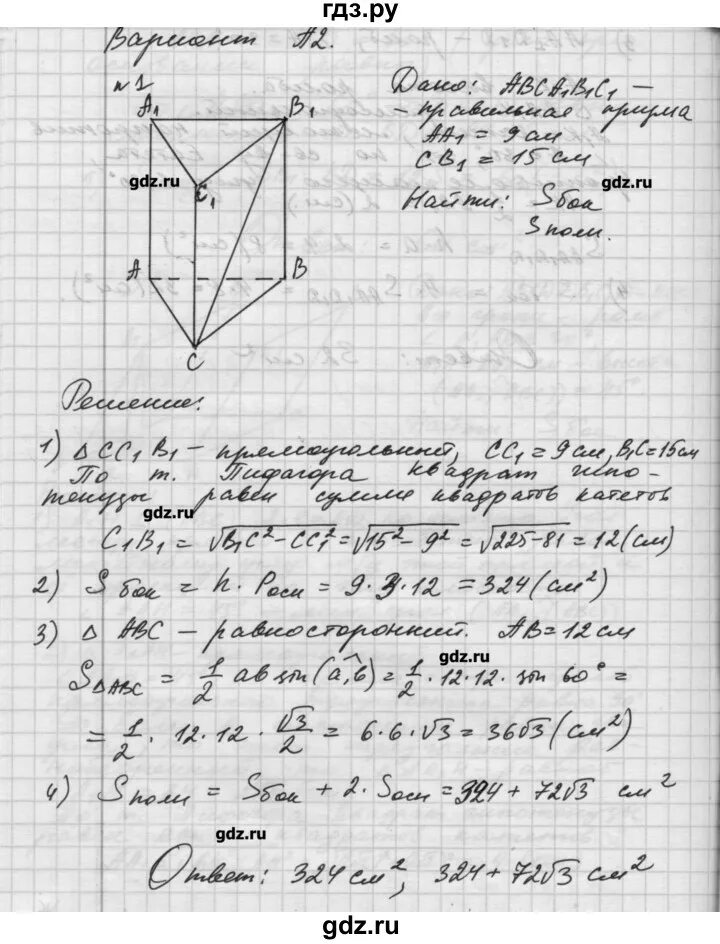 гдз.ру
Вариант А2.
№1
A₁
B₁
C₁
A
B
C
gdz.ru
Дано: ABCA₁B₁C₁ –
– правильная призма
AA₁ = 9 см
CB₁ = 15 см
gdz.ru
Найти: Sбок
Sполн.
Решение:
1) △CC₁B₁ – прямоугольный, CC₁ = 9 см, B₁C = 15 см
По т. Пифагора квадрат гипо-
тенузы равен сумме квадратов катетов
gdz.ru
C₁B₁ = √B₁C² – CC₁² = √15² – 9² = √225–81 = 12 (см)
2) Sбок = h · Pосн = 9·3·12 = 324 (см²)
3) △ABC – равносторонний. AB = 12 см
gdz.ru
S△ABC = 1/2 ab sin(a,^b) = 1/2 · 12·12 · sin 60° =
= 1/2 · 12·12 · √3/2 = 6·6·√3 = 36√3 (см²)
4) Sполн = Sбок + 2·Sосн = 324 + 72√3 см²
gdz.ru
Ответ: 324 см², 324 + 72√3 см²
gdz.ru